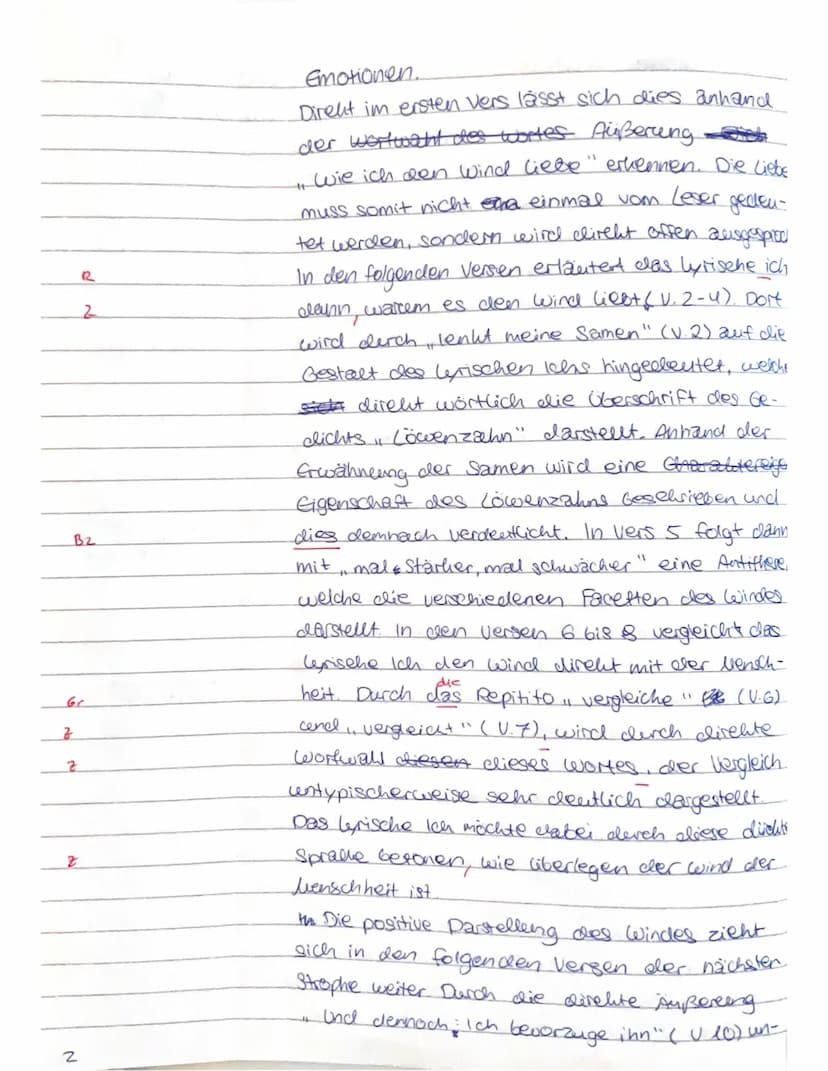 Emotionen.
Direkt im ersten Vers lässt sich dies anhand
der Wortwahl des Wortes Äußerung sich
„Wie ich den Wind liebe" erkennen. Die Liebe
muss somit nicht einmal vom Leser gedeu-
tet werden, sondern wird direkt offen ausgesproc
R In den folgenden Versen erläutert das lyrische ich
Z dann, warum es den Wind liebt (V. 2-4). Dort
wird durch „lenkt meine Samen" (V.2) auf die
Gestalt des lyrischen Ichs hingedeutet, welche
sich direkt wörtlich die Überschrift des Ge-
dichts „Löwenzahn" darstellt. Anhand der
Erwähnung der Samen wird eine Charaktereige
Eigenschaft des Löwenzahns beschrieben und
Bz dies demnach verdeutlicht. In Vers 5 folgt dann
mit „mal stärker, mal schwächer" eine Antithese,
welche die verschiedenen Facetten des Windes
darstellt. In den Versen 6 bis 8 vergleicht das
lyrische Ich den Wind direkt mit der Mensch-
die
Gr heit. Durch das Repitito „vergleiche" (V.6)
Z und „vergleicht" (V.7), wird durch direkte
Z Wortwahl diesen dieses Wortes, der Vergleich
untypischerweise sehr deutlich dargestellt.
Das lyrische Ich möchte dabei durch diese direkte
Z Sprache betonen, wie überlegen der Wind der
Menschheit ist.
In Die positive Darstellung des Windes zieht
sich in den folgenden Versen der nächsten
Strophe weiter. Durch die direkte Äußerung
„Und dennoch: Ich bevorzuge ihn" (V.10) un-
2